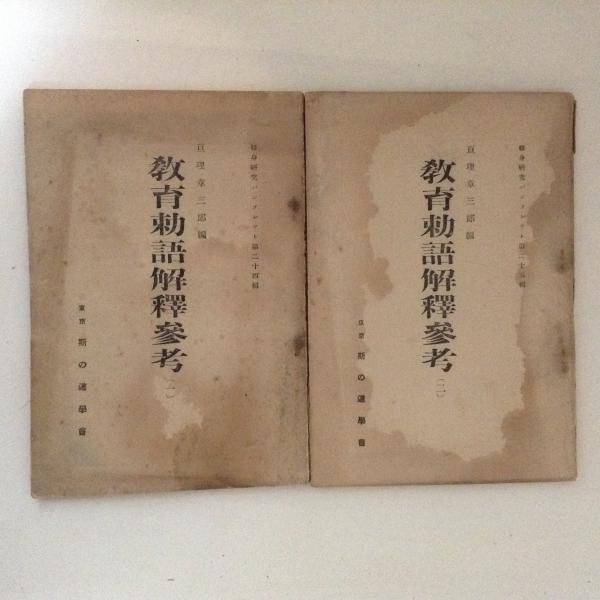 修身研究パンフレット第二十四輯
亘理章三郎編
教育勅語解釋參考(一)
東京 斯の道學會
修身研究パンフレット第二十五輯
亘理章三郎編
教育勅語解釋參考(二)
東京 斯の道學會